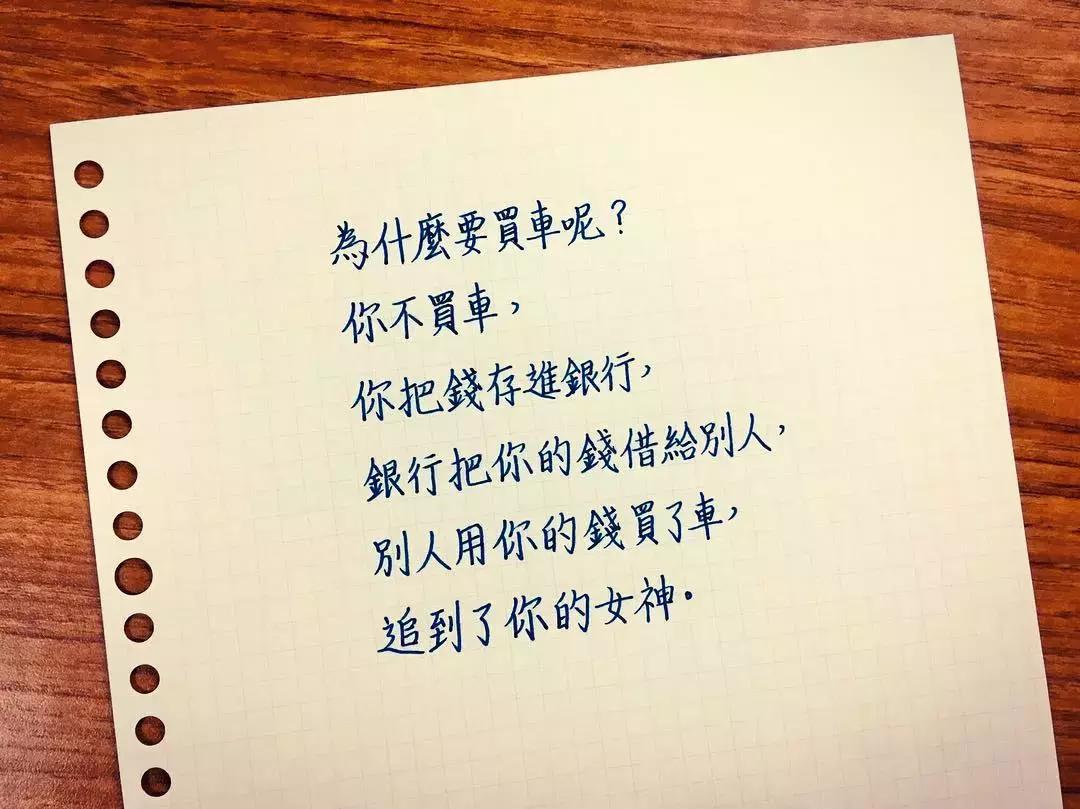 為什麼要買車呢？
你不買車，
你把錢存進銀行，
銀行把你的錢借給別人，
別人用你的錢買了車，
追到了你的女神。